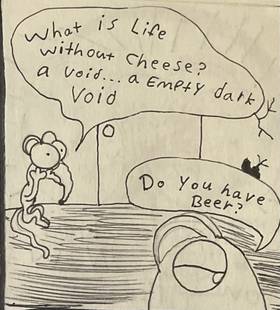 What is Life
without cheese?
a void... a EMPty dark
Void
Do You have
Beer?